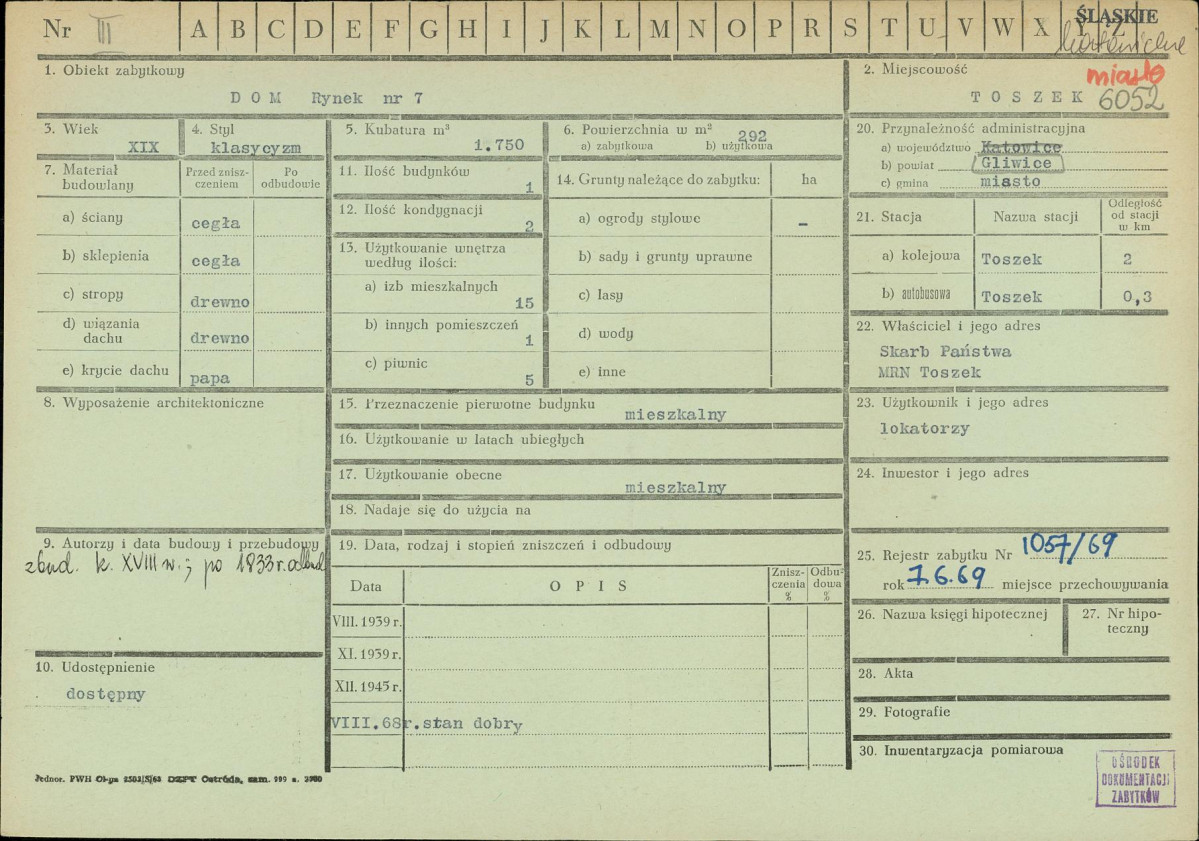 Nr III A B C D E F G H I J K L M N O P R S T U V W X Y Z
ŚLĄSKIE
miasto
6052
1. Obiekt zabytkowy
DOM Rynek nr 7
2. Miejscowość
TOSZEK
3. Wiek
XIX
4. Styl
klasycyzm
5. Kubatura m³
1.750
6. Powierzchnia w m²
292
a) zabytkowa b) użytkowa
7. Materiał budowlany
Przed zniszczeniem
Po odbudowie
a) ściany cegła
b) sklepienia cegła
c) stropy drewno
d) wiązania dachu drewno
e) krycie dachu papa
8. Wyposażenie architektoniczne
9. Autorzy i data budowy i przebudowy
zbud. k. XVIII w.; po 1833 r. odbud
10. Udostępnienie
dostępny
11. Ilość budynków
1
12. Ilość kondygnacji
2
13. Użytkowanie wnętrza według ilości:
a) izb mieszkalnych
15
b) innych pomieszczeń
1
c) piwnic
5
14. Grunty należące do zabytku: ha
a) ogrody stylowe –
b) sady i grunty uprawne
c) lasy
d) wody
e) inne
15. Przeznaczenie pierwotne budynku
mieszkalny
16. Użytkowanie w latach ubiegłych
17. Użytkowanie obecne
mieszkalny
18. Nadaje się do użycia na
19. Data, rodzaj i stopień zniszczeń i odbudowy
Data OPIS Zniszczenia % Odbudowa %
VIII. 1939 r.
XI. 1939 r.
XII. 1945 r.
VIII.68r. stan dobry
20. Przynależność administracyjna
a) województwo Katowice
b) powiat Gliwice
c) gmina miasto
21. Stacja Nazwa stacji Odległość od stacji w km
a) kolejowa Toszek 2
b) autobusowa Toszek 0,3
22. Właściciel i jego adres
Skarb Państwa
MRN Toszek
23. Użytkownik i jego adres
lokatorzy
24. Inwestor i jego adres
25. Rejestr zabytku Nr 1057/69
rok 7.6.69 miejsce przechowywania
26. Nazwa księgi hipotecznej
27. Nr hipoteczny
28. Akta
29. Fotografie
30. Inwentaryzacja pomiarowa
OŚRODEK
DOKUMENTACJI
ZABYTKÓW